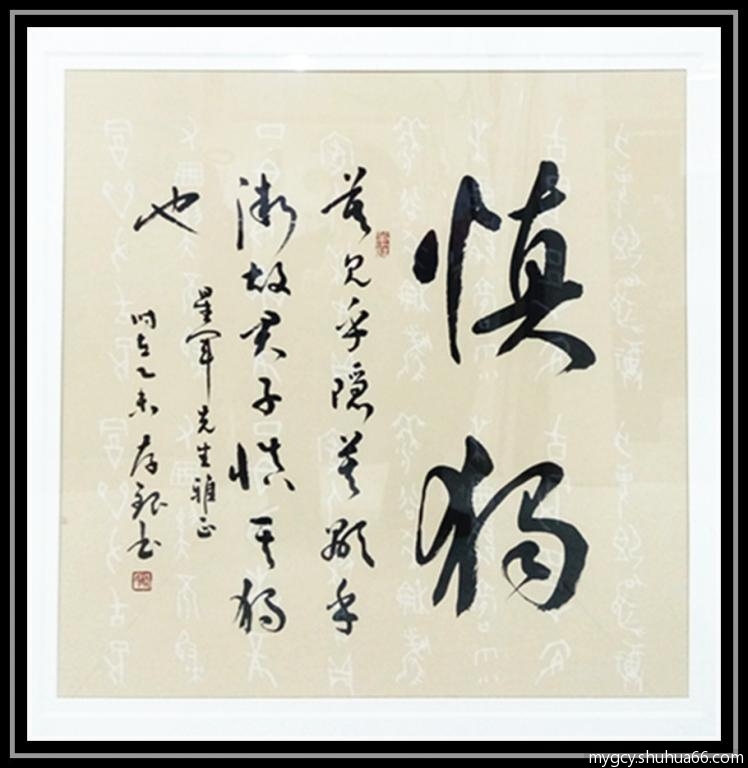 慎獨
莫見乎隱莫顯乎
微故君子慎其獨
也
星軍先生雅正
時在乙未存銀書
mygcy.shuhua66.com